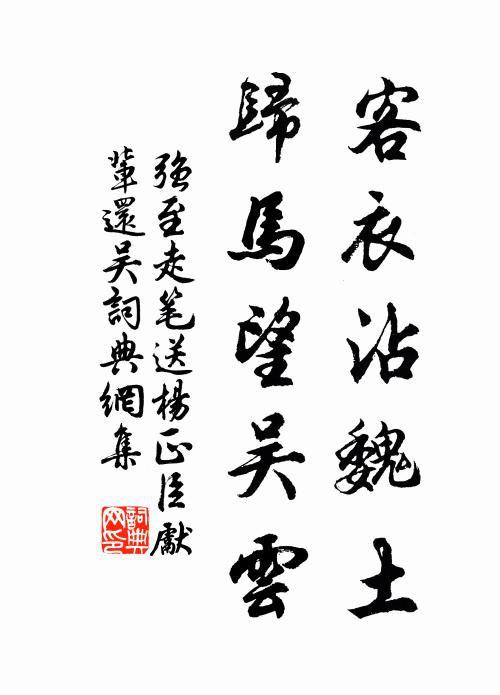 客衣沾魏土
歸馬望吴雲
強至走笔送楊正臣獻
輦還吴詞典網集
詞典
网印